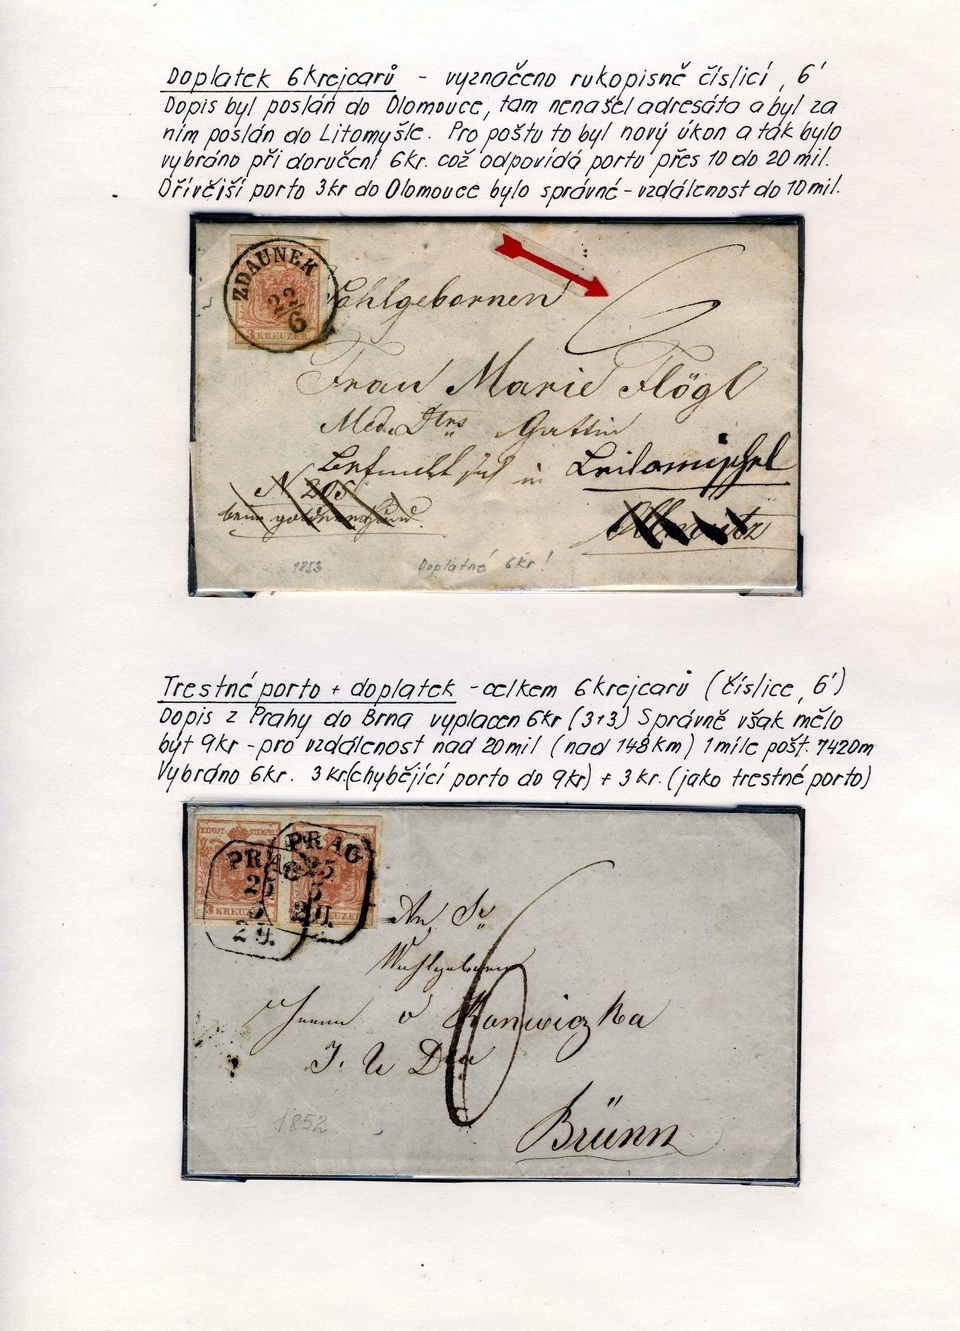 Doplatek 6 krejcarů - vyznačeno rukopisně číslicí „6‘
Dopis byl poslán do Olomouce, tam nenašel adresáta a byl za
ním poslán do Litomyšle. Pro poštu to byl nový úkon a tak bylo
vybráno při doručení 6kr. což odpovídá portu přes 10 do 20 mil.
Dřívější porto 3kr do Olomouce bylo správné - vzdálenost do 10 mil.
ZDAUNEK
22/6
3 KREUZER
6
Wohlgebornen
Frau Marie Flögl
Med. Dtrs Gattin
in Leitomischl
N 205
Ollmütz
1853 Doplatné 6kr!
Trestné porto + doplatek - celkem 6 krejcarů (číslice „6‘)
Dopis z Prahy do Brna vyplacen 6kr (3+3) Správně však mělo
být 9kr - pro vzdálenost nad 20 mil (nad 148 km) 1 míle pošt. 7420m
Vybráno 6kr. 3kr (chybějící porto do 9kr) + 3kr. (jako trestné porto)
PRAG
25
5
2 U.
PRAG
25
5
2 U.
3 KREUZER
KREUZER
6
An Sr
Wohlgeboren
Herrn v
J. U Dr
Brünn
1852